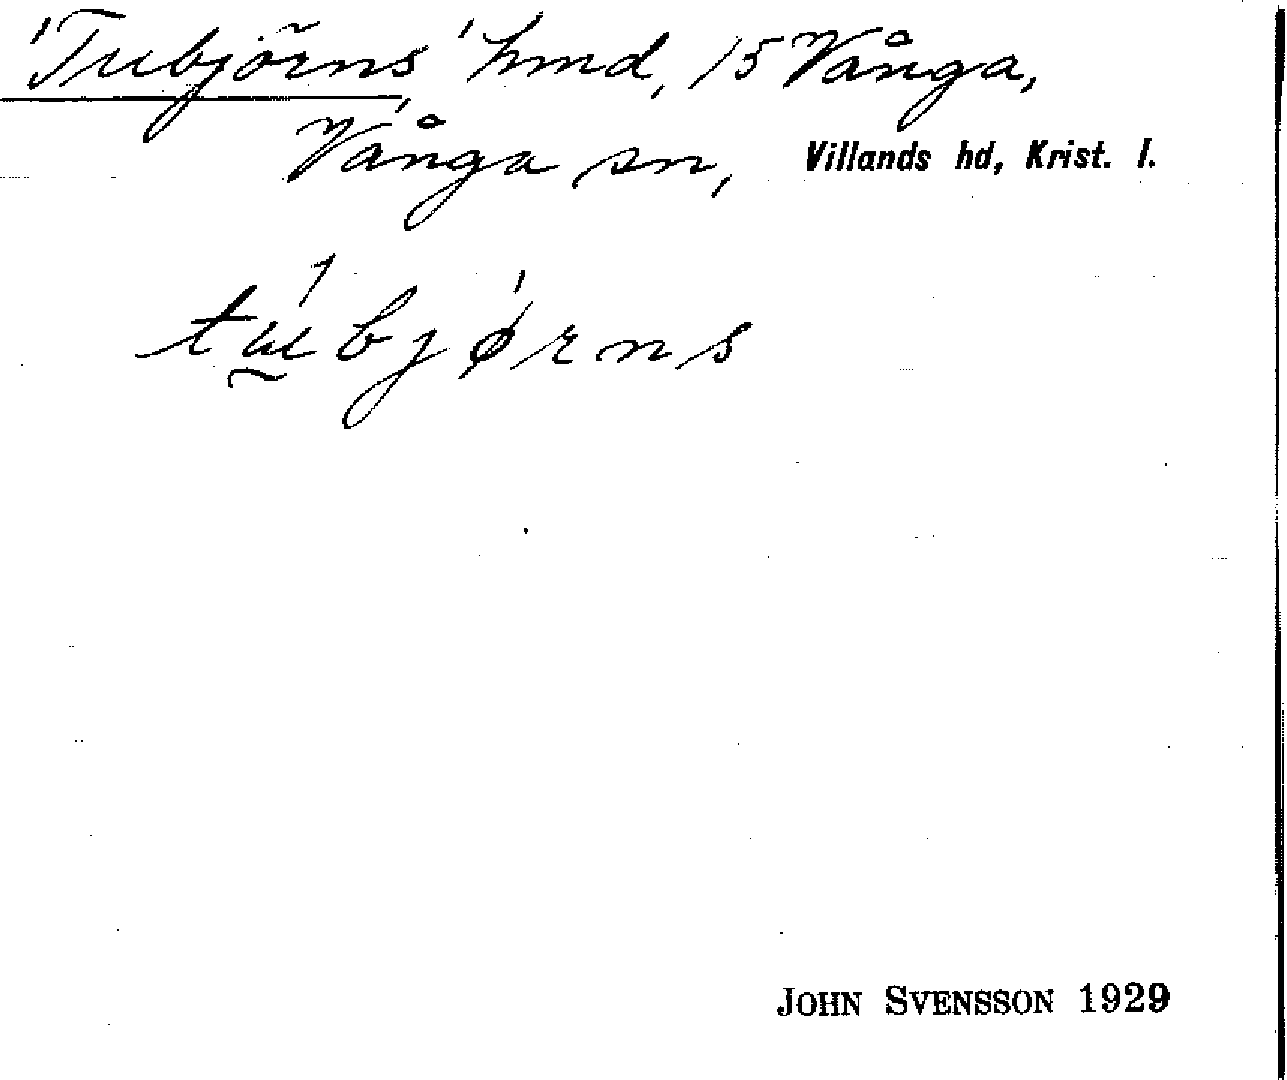 'Tubjörns' hmd, 15 Vånga,
Vånga sn, Villands hd, Krist. l.
tṵbjørns
JOHN SVENSSON 1929